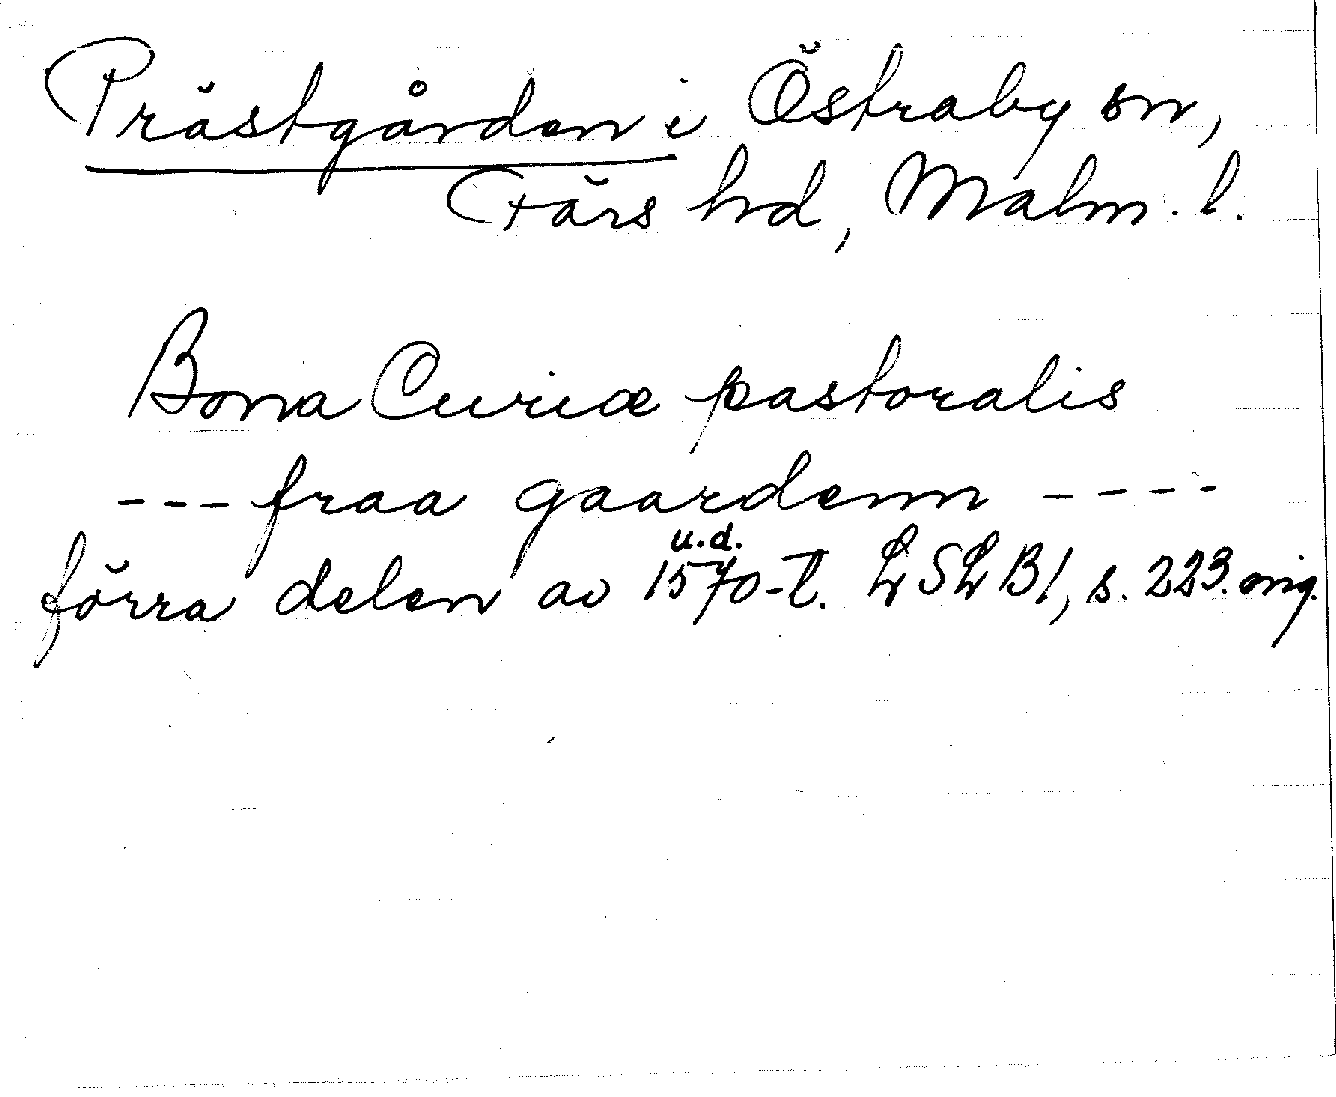 Prästgården i Östraby sn,
Färs hd, Malm. l.
Bona Curiæ pastoralis
--- fraa gaardenn ----
u.d.
förra delen av 1570-t. LSLB1, s. 223. orig.